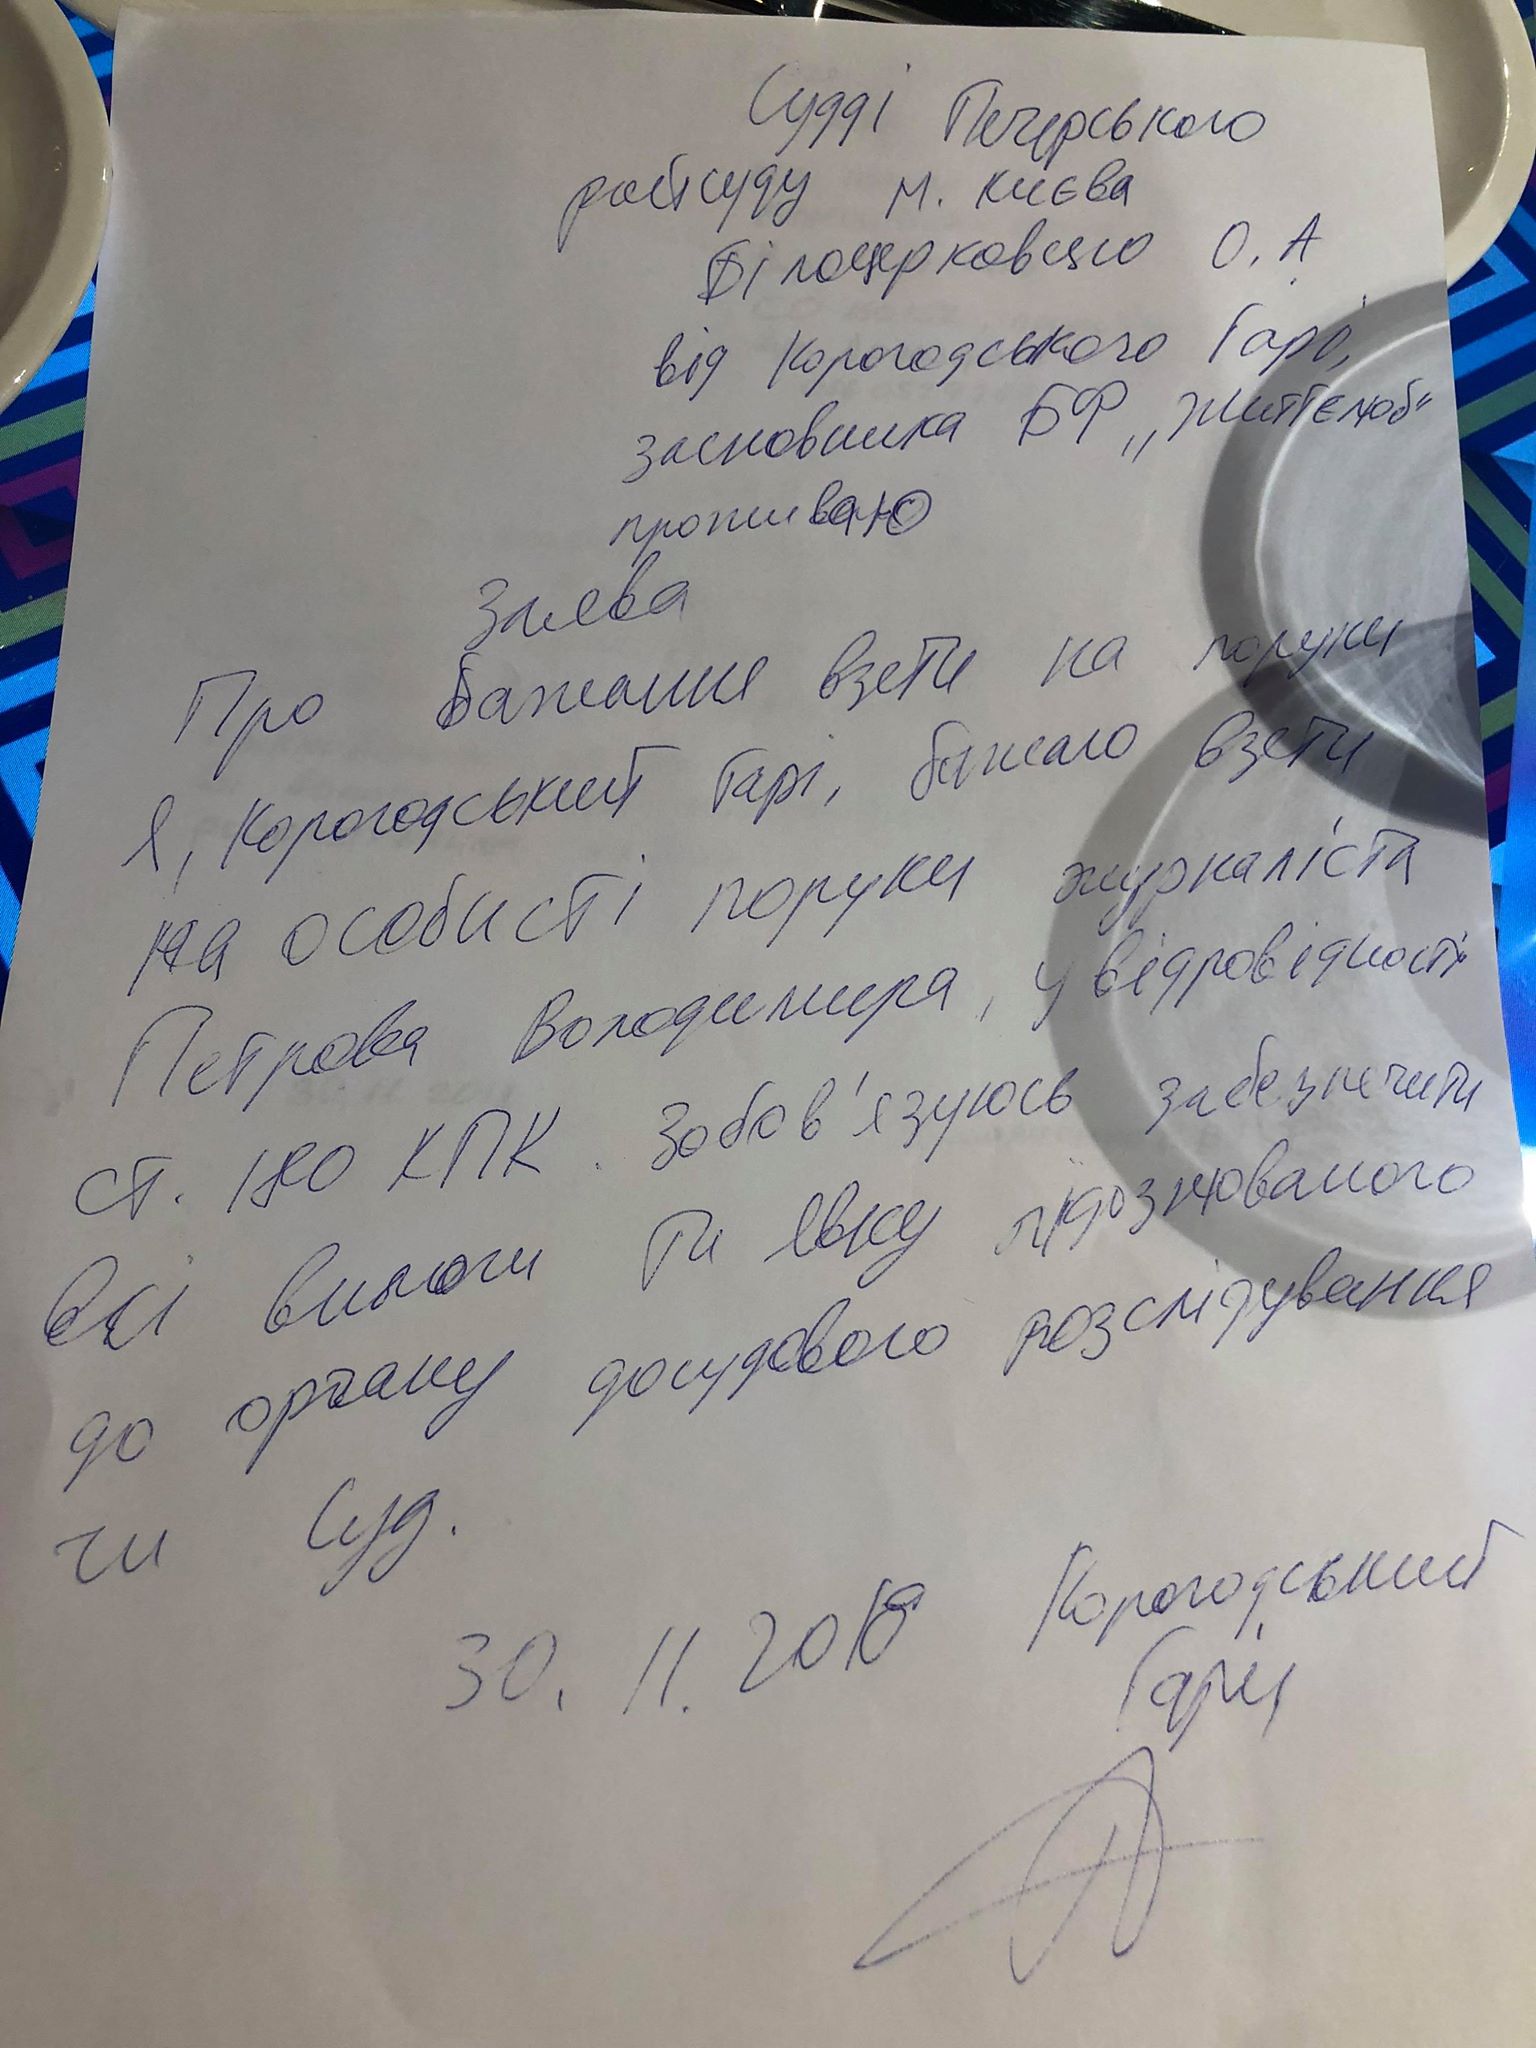 Судді Печерського
райсуду м. Києва
Білоцерковцю О. А
від Корогодського Гарі,
засновника БФ „Життєлюб"
проживаю
Заява
Про бажання взяти на поруки
Я, Корогодський Гарі, бажаю взяти
на особисті поруки журналіста
Петрова Володимира, у відповідності
ст. 180 КПК. Зобов'язуюсь забезпечити
всі вимоги та явку підозрюваного
до органу досудового розслідування
чи суд.
30. 11. 2018 Корогодський
Гарі